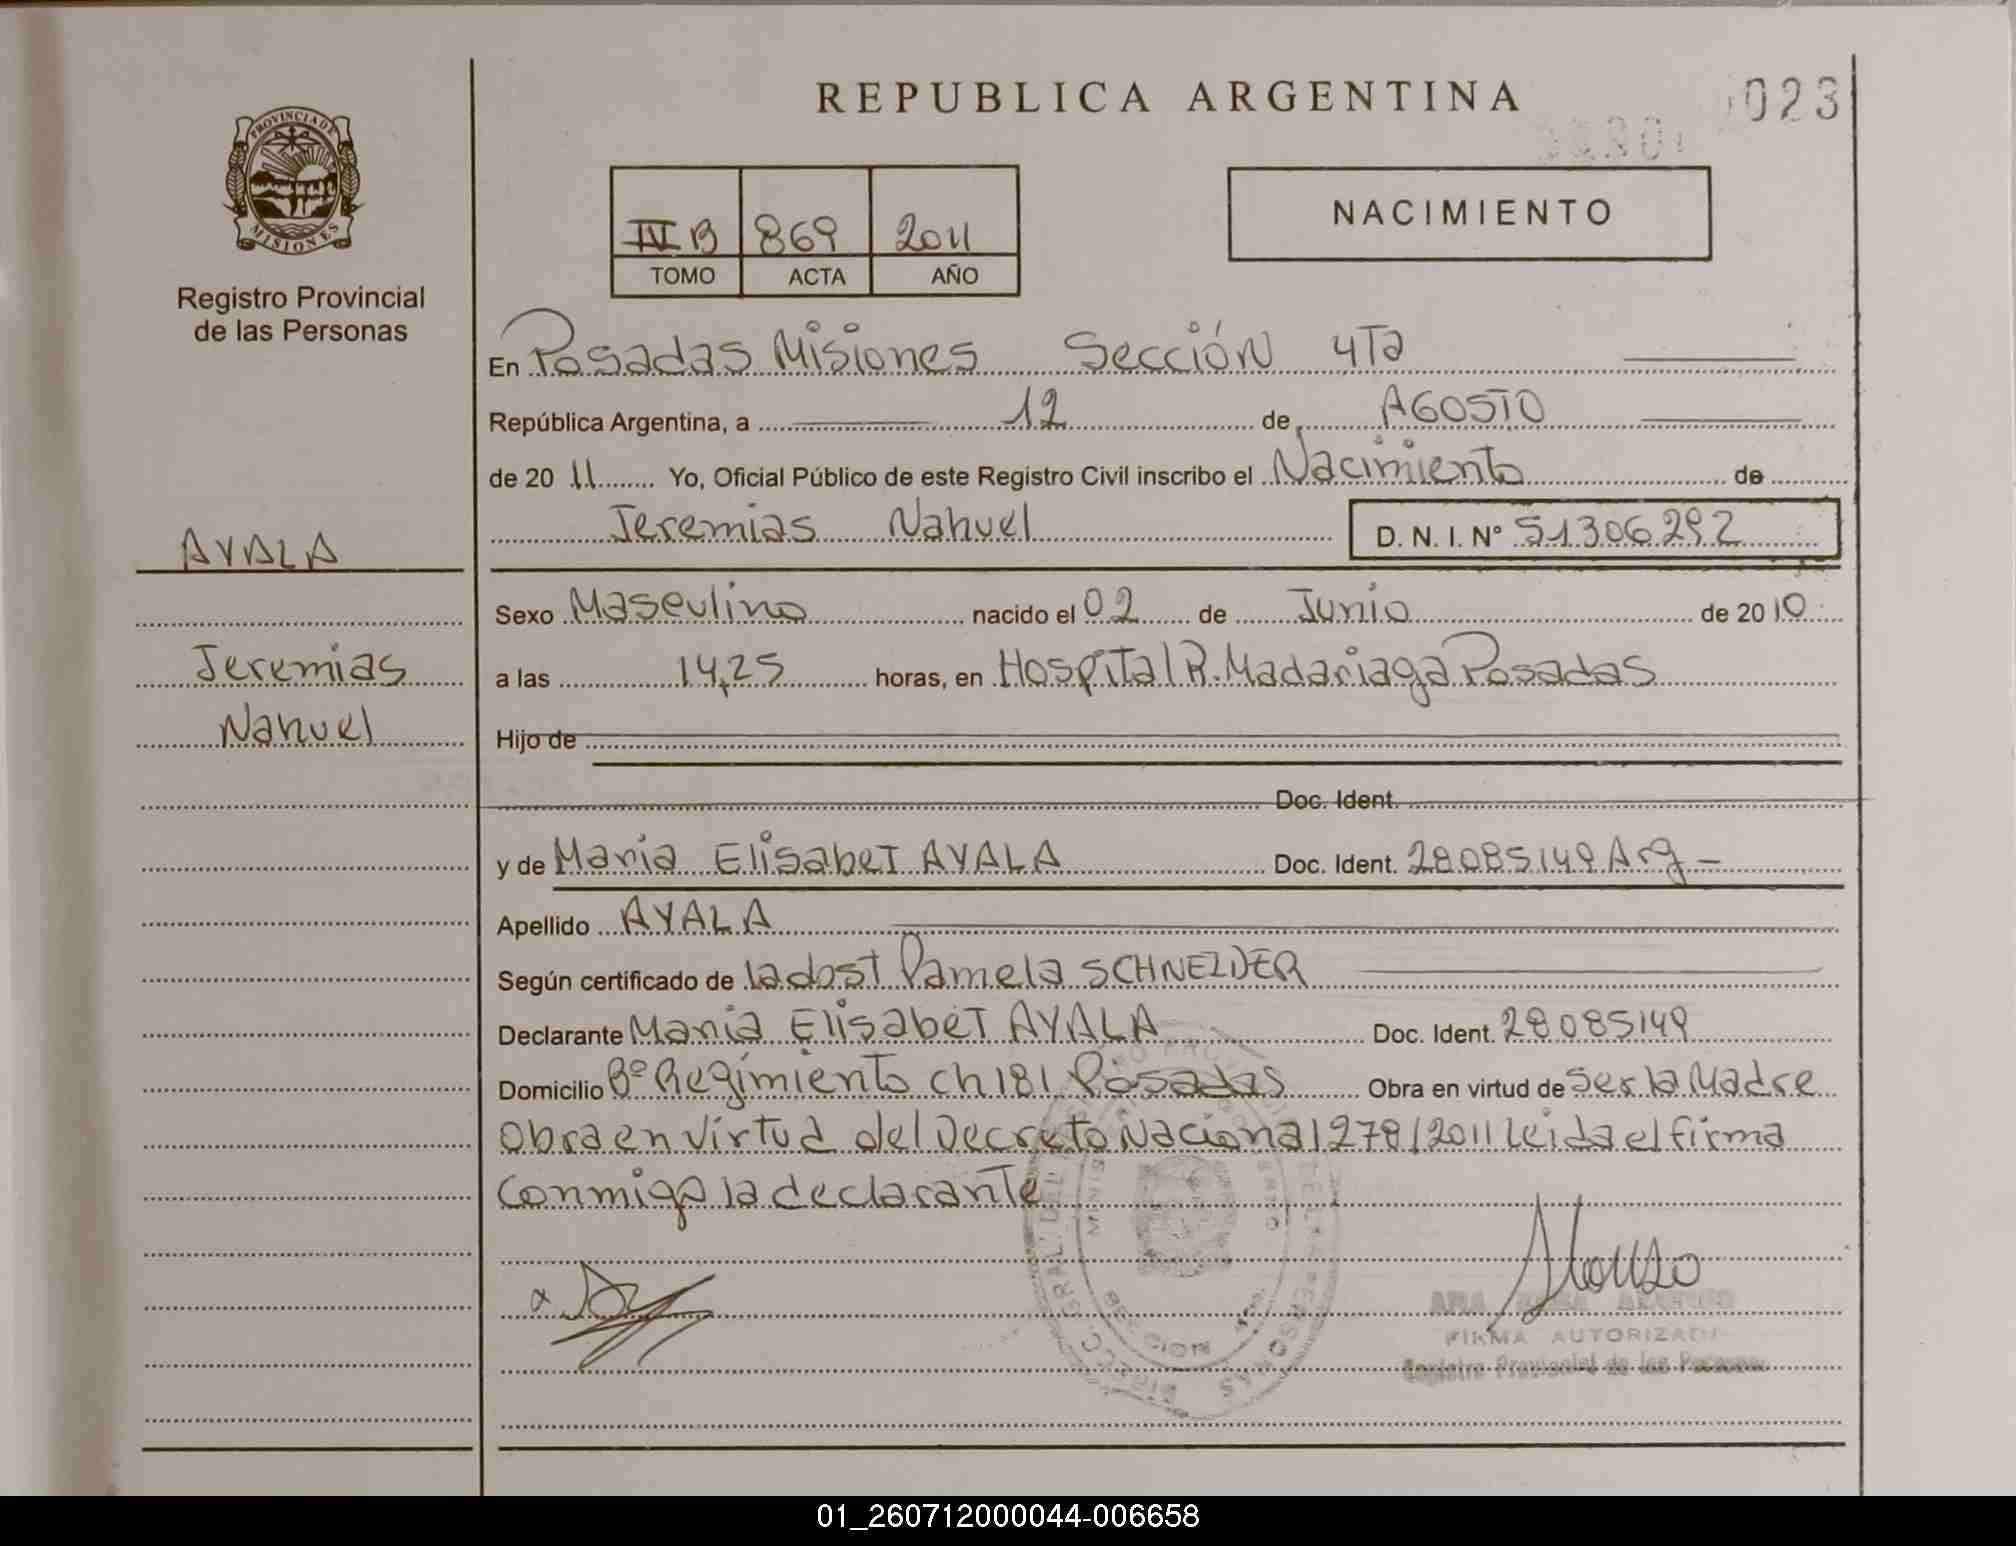 REPUBLICA ARGENTINA
023
PROVINCIA DE
MISIONES
Registro Provincial
de las Personas
IV B 869 2011
TOMO ACTA AÑO
NACIMIENTO
En Posadas Misiones Sección 4Ta
República Argentina, a 12 de AGOSTO
de 2011 Yo, Oficial Público de este Registro Civil inscribo el Nacimiento de
Jeremias Nahuel D. N. I. N° 51306292
AYALA
Sexo Masculino nacido el 02 de Junio de 2010
Jeremias
a las 14,25 horas, en Hospital R. Madariaga Posadas
Nahuel
Hijo de
Doc. Ident.
y de Maria Elisabet AYALA Doc. Ident. 28085149 Arg -
Apellido AYALA
Según certificado de la dost Pamela SCHNEIDER
Declarante Maria Elisabet AYALA Doc. Ident. 28085149
Domicilio Bº Regimiento ch 181 Posadas Obra en virtud de ser la Madre
Obra en virtud del Decreto Nacional 278/2011 Leida el firma
Conmigo la declarante
FIRMA AUTORIZADA
Registro Provincial de las Personas
01_260712000044-006658